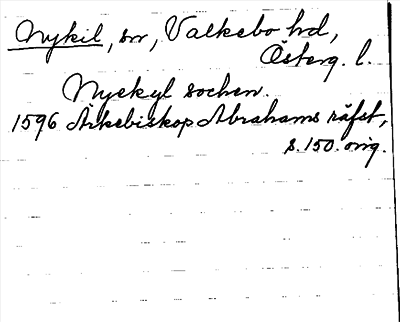 Nykil, sn, Valkebo hd,
Österg. l.
Nyekyl sochen.
1596 Ärkebiskop Abrahams räfst,
s. 150. orig.